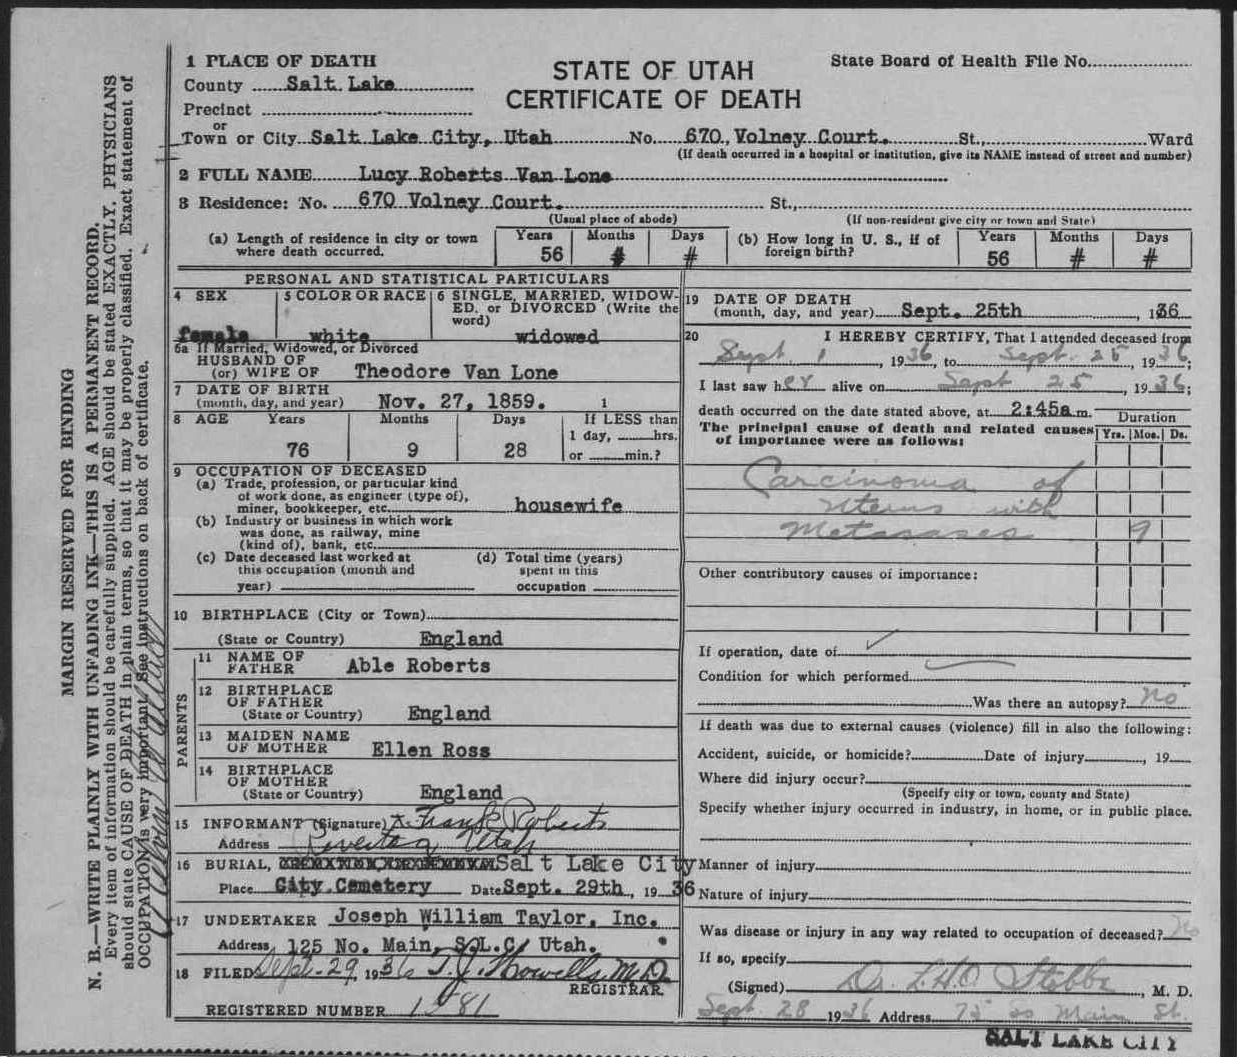 MARGIN RESERVED FOR BINDING
N. B.—WRITE PLAINLY WITH UNFADING INK—THIS IS A PERMANENT RECORD.
Every item of information should be carefully supplied. AGE should be stated EXACTLY. PHYSICIANS
should state CAUSE OF DEATH in plain terms, so that it may be properly classified. Exact statement of
OCCUPATION is very important. See instructions on back of certificate.
1 PLACE OF DEATH
County Salt Lake
Precinct
or
Town or City Salt Lake City, Utah No. 670 Volney Court. St., Ward
STATE OF UTAH
CERTIFICATE OF DEATH
State Board of Health File No.
(If death occurred in a hospital or institution, give its NAME instead of street and number)
2 FULL NAME Lucy Roberts Van Lone
3 Residence: No. 670 Volney Court. St.,
(Usual place of abode) (If non-resident give city or town and State)
(a) Length of residence in city or town where death occurred. Years 56 Months # Days #
(b) How long in U. S., if of foreign birth? Years 56 Months # Days #
PERSONAL AND STATISTICAL PARTICULARS
4 SEX female
5 COLOR OR RACE white
6 SINGLE, MARRIED, WIDOWED, or DIVORCED (Write the word) widowed
6a If Married, Widowed, or Divorced
HUSBAND OF
(or) WIFE OF Theodore Van Lone
7 DATE OF BIRTH
(month, day, and year) Nov. 27, 1859. 1
8 AGE Years 76 Months 9 Days 28
If LESS than
1 day, hrs.
or min.?
9 OCCUPATION OF DECEASED
(a) Trade, profession, or particular kind
of work done, as engineer (type of),
miner, bookkeeper, etc. housewife
(b) Industry or business in which work
was done, as railway, mine
(kind of), bank, etc.
(c) Date deceased last worked at
this occupation (month and
year)
(d) Total time (years)
spent in this
occupation
10 BIRTHPLACE (City or Town)
(State or Country) England
PARENTS
11 NAME OF
FATHER Able Roberts
12 BIRTHPLACE
OF FATHER
(State or Country) England
13 MAIDEN NAME
OF MOTHER Ellen Ross
14 BIRTHPLACE
OF MOTHER
(State or Country) England
15 INFORMANT (Signature) x Frank Roberts
Address Riverton Utah
16 BURIAL, Salt Lake City
Place City Cemetery Date Sept. 29th, 1936
17 UNDERTAKER Joseph William Taylor, Inc.
Address 125 No. Main, S.L.C. Utah.
18 FILED Sept-29 1936 T. J. Howells, M.D.
REGISTRAR
REGISTERED NUMBER 1581
19 DATE OF DEATH
(month, day, and year) Sept. 25th , 1936
20 I HEREBY CERTIFY, That I attended deceased from
Sept 1, 1936, to Sept. 25, 1936;
I last saw her alive on Sept 25, 1936;
death occurred on the date stated above, at 2:45a m.
The principal cause of death and related causes
of importance were as follows:
Duration
Yrs. Mos. Ds.
Carcinoma of
Uterus with
Metasases 9
Other contributory causes of importance:
If operation, date of
Condition for which performed
Was there an autopsy? no
If death was due to external causes (violence) fill in also the following:
Accident, suicide, or homicide? Date of injury , 19
Where did injury occur?
(Specify city or town, county and State)
Specify whether injury occurred in industry, in home, or in public place.
Manner of injury
Nature of injury
Was disease or injury in any way related to occupation of deceased? No
If so, specify
(Signed) Dr. L.H.O. Stobbe, M. D.
Sept 28 1936 Address 75 So Main St.
SALT LAKE CITY